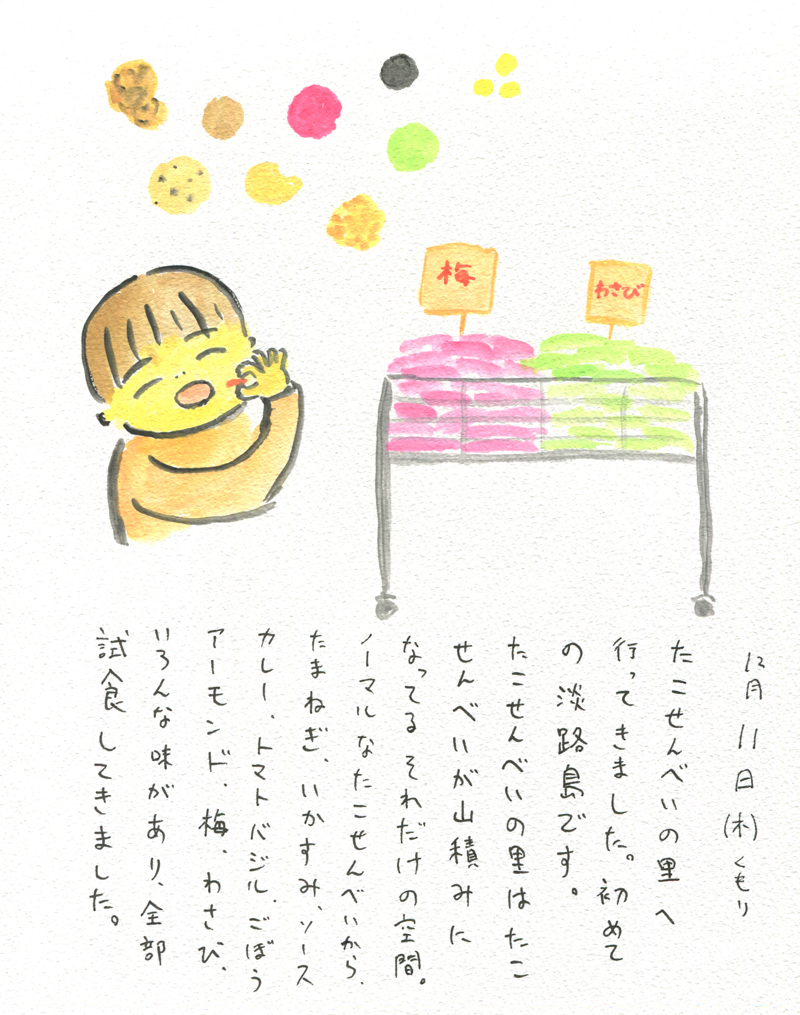 梅
わさび
12月 11日(木)くもり
たこせんべいの里へ
行ってきました。初めて
の淡路島です。
たこせんべいの里はたこ
せんべいが山積みに
なってるそれだけの空間。
ノーマルなたこせんべいから、
たまねぎ、いかすみ、ソース
カレー、トマトバジル、ごぼう
アーモンド、梅、わさび、
いろんな味があり、全部
試食してきました。